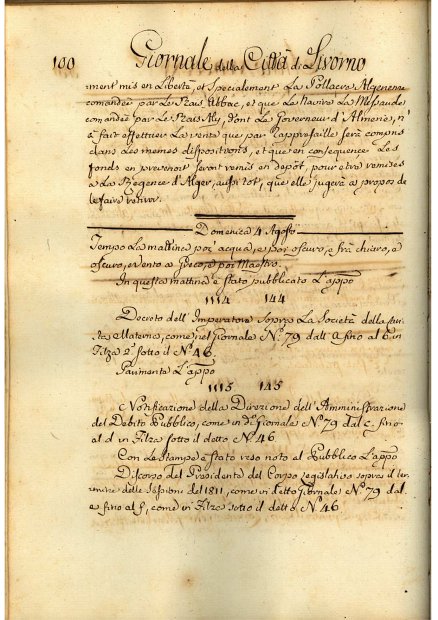 100 Giornale della Città di Livorno
ment mis en Liberté, et Specialement La Pollacre Algerienne
comandée par Le Rais Abbac, et que Le Navire La Messaude
comandé par Le Rais Aly, dont Le Governeur d'Almerie, n'
à fait effettuer La vente que par Rappresaille serà compris
dans Les memes dispositions, et que en consequence Les
fonds en provenant seront remis en depôt, pour etre remises
a La Regence d'Alger, aussi tot, que elle jugerà a propos de
le faire retirer.
Domenica 4 Agosto
Tempo La mattina poi acqua, e poi oscuro, e frà chiaro, e
oscuro, e vento a Greco, e poi Maestro.
In questa mattina è stato pubblicato L'appo
1114 144
Decreto dell'Imperatore sopra La Società della
Materna, come nel Giornale N.º 79 dall' a fino al b in
Filza 2ª sotto il N.º 46
Parimente L'appo
1115 145
Notificazione della Direzione dell'Amministrazione
del Debito Pubblico, come in dº Giornale N.º 79 dal c. fino
al d in Filza sotto il detto N.º 46
Con Le Stampe è stato reso noto al Pubblico L'appo
Discorso del Presidente del Corpo Legislativo sopra il ter-
minare delle Sessione del 1811, come in detto Giornale N.º 79 dal
e fino al f, come in Filza sotto il detto N.º 46